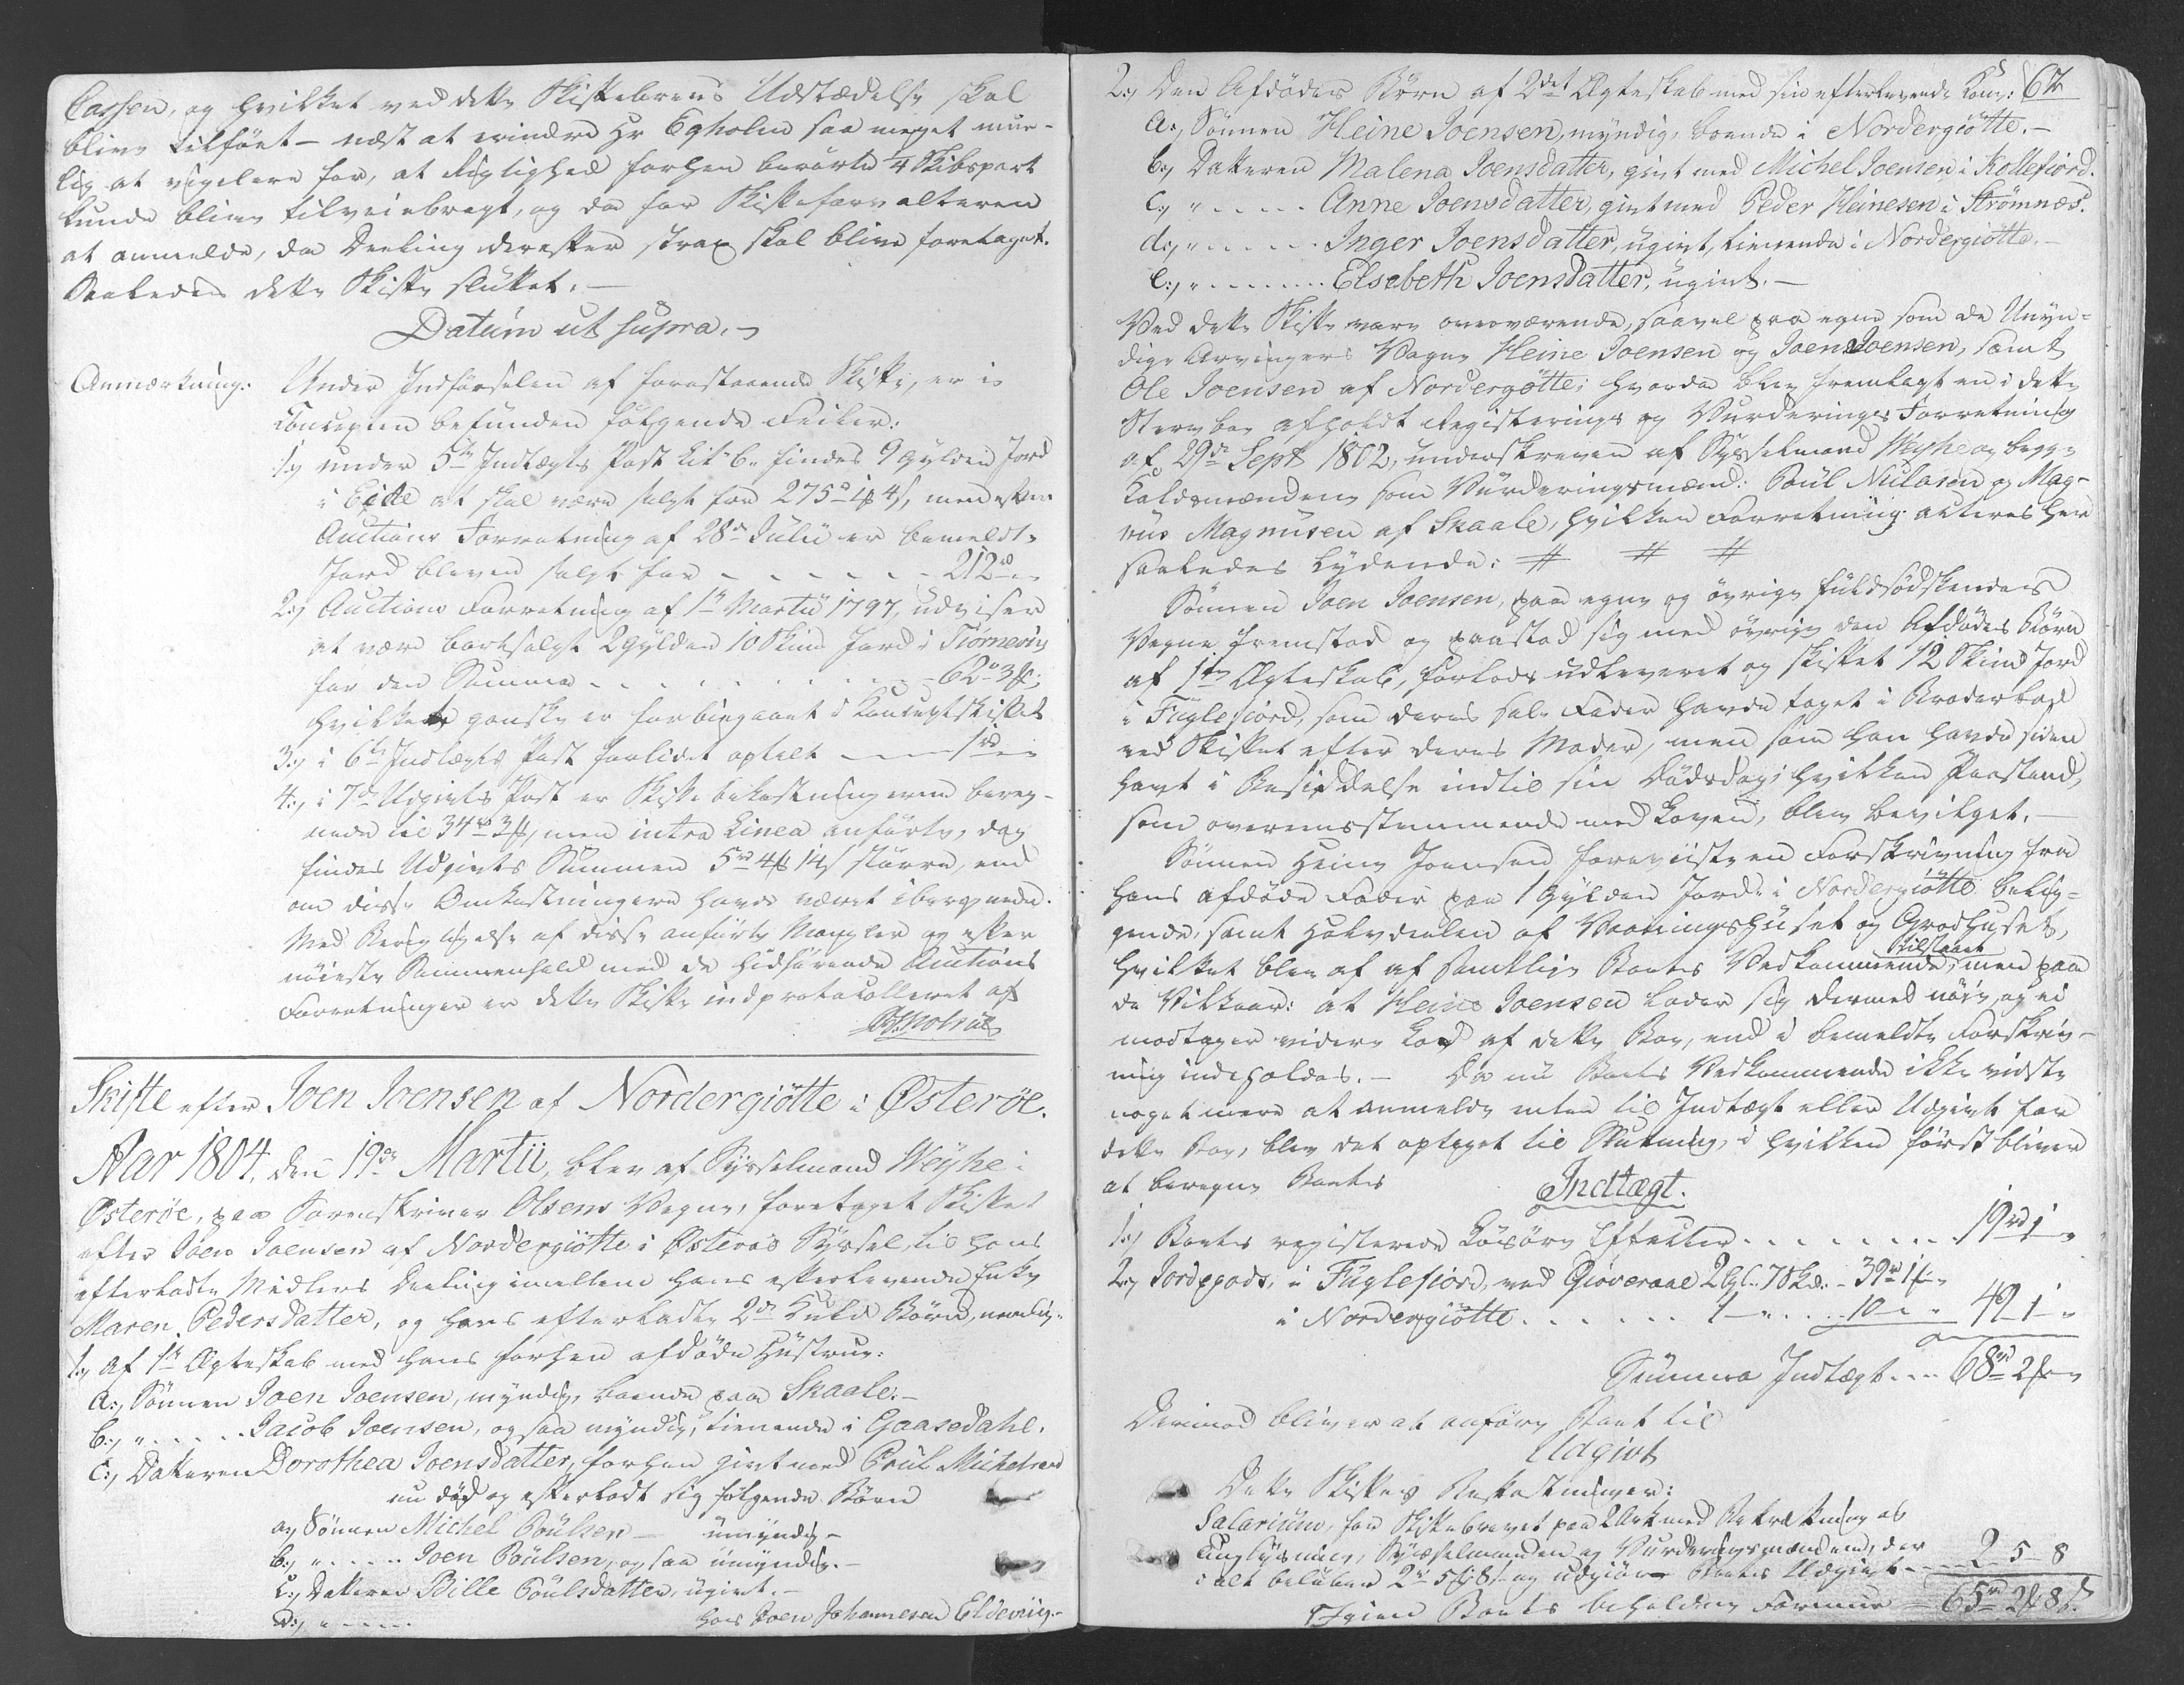 Cassen, og hvilket ved dette Skiftebrevs Udstædelse skal
blive tilført – næst at erindre Hr Egholm saa meget mue-
lig at vigilere for, at Rigtighed forhen berørte 1/4 Skibspart
kunde blive tilveiebragt, og da for Skifteforvalteren
at anmelde, da Deeling derefter strax skal blive foretaget.
Saaledes dette Skifte sluttet. –
Datum ut supra. –
Anmærkning: Under Indførselen af forestaaende Skifte, er i
Concepten befunden følgende Feiler:
1.) under 5te Indtægts Post Litr b. findes 9 Gylden Jord
i Eide at skal være solgt for 275 rd 1 ß 4 s, men efter
Auctions Forretning af 28de Julii er bemeldte
Jord bleven solgt for - - - - - - 212 rd
2.) Auctions Forretning af 1te Martii 1797, udviser
at være bortsolgt 2 Gylden 10 Skind Jord i Tiørnevig
for den Summa - - - - - - 62 rd 3 ß;
hvilket ganske er forbiegaaet i Conceptskiftet
3.) i 6te Indtægts Post forlidet optalt - - - 1 rd
4.) i 7de Udgivts Post er Skifte bekostningerne bereg-
nede til 34 rd 3 ß, men intra Linea anførte, dog
findes Udgivts Summen 5 rd 4 ß 14 s større, end
om disse Omkostningere havde været iberegnede.
Med Berigtigelse af disse anførte Mangler og efter
nøieste Sammenhold med de hidhørende Auctions
Forretninger er dette Skifte indprotocolleret af
Skifte efter Joen Joensen af Nordergiøtte i Østerøe.
Aar 1804, den 19de Martii, blev af Sysselmand Weyhe i
Østerøe, paa Sorenskriver Olsens Vegne, foretaget Skiftet
efter Joen Joensen af Nordergiøtte i Østerøe Syssel, til hans
efterladte Midlers Deeling imellem hans efterlevende Enke
Maren Pedersdatter, og hans efterladte 2de Kuld Børn, nemlig:
1.) af 1te Ægteskab med hans forhen afdøde Hustrue:
a.) Sønnen Joen Joensen, myndig, boende paa Skaale. –
b.) " - - - - Jacob Joensen, og saa myndig, tienende i Gaasedahl.
c.) Datteren Dorothea Joensdatter, forhen givt med Poul Michelsen
nu død og efterladt sig følgende Børn
a.) Sønnen Michel Poulsen – umyndig –
b.) " - - - - Joen Poulsen, og saa umyndig. –
c.) Datteren Bille Poulsdatter, ugivt. –
D.) " - - - - hos Joen Johannesen Eldevig. –
62
2.) Den Afdødes Børn af 2det Ægteskab med sin efterlevende Kone:
a.) Sønnen Heine Joensen, myndig, boende i Nordergiøtte. –
b.) Datteren Malena Joensdatter, givt med Michel Joensen i Kollefiord.
c.) " - - - - Anne Joensdatter, givt med Peder Heinesen i Strømnæs.
d.) " - - - - Inger Joensdatter, ugivt, tienende i Nordergiøtte. –
e.) " - - - - Elsebeth Joensdatter, ugivt. –
Ved dette Skifte vare overværende, saavel paa egne som de Umyn-
dige Arvingers Vegne Heine Joensen og Joen Joensen, samt
Ole Joensen af Nordergøtte; hvorda blev fremlagt en i dette
Sterv boe afholdt Registerings og Vurderings Forretning
af 29de Sept 1802, underskreven af Sysselmand Weyhe og begge
Kaldsmændene som Vurderingsmænd: Poul Niclasen og Mag-
nus Magnusen af Skaale, hvilken Forretning acteres her
saaledes lydende: # # #
Sønnen Joen Joensen, paa egne og øvrige fuldsødskendes
Vegne fremstod og paastod sig med øvrige den Afdødes Børn
af 1te Ægteskab, forlods udleveret og skiftet 12 Skind Jord
i Fuglefiord, som deres sal. Fader havde taget i Broderlod
ved Skiftet efter deres Moder, men som han havde siden
havt i Besiddelse indtil sin Dødsdag; hvilken Paastand,
som overeensstemmende med Loven, blev bevilget. –
Sønnen Heine Joensen foreviiste en Forskrivning fra
hans afdøde Fader paa 1 Gylden Jord i Nordergiøtte belig-
gende, samt Halvdeelen af Vaaningshuset og Grodhuset,
hvilket blev af af samtlige Boets Vedkommende tilstaaet, men paa
de Vilkaar: at Heine Joensen lader sig dermed nøie, og ei
modtager videre Lod af dette Boe, end i bemeldte Forskriv-
ning indeholdes. – Da nu Boets Vedkommende ikke vidste
noget mere at anmelde enten til Indtægt eller Udgivt for
dette Boe, blev det optaget til Slutning, i hvilken først bliver
at beregne Boets
Indtægt.
1.) Boets registerede Løsøre Effecter - - - - - - 19 rd 1
2.) Jordegods, i Fuglefiord, ved Giøveraae 2 Gl. 7 Skd. - 39 rd 1 ß
i Nordergiøtte - - - - - 1 - " - - 10 - - 49 1
Summa Indtægt - - - 68 rd 2 ß
Derimod bliver at anføre Boet til
Udgivt
Dette Skiftes Bekostninger:
Salarium, for Skiftebrevet paa 2 Ark med Bekræftning og
Tinglysning, Sysselmanden og Vurderingsmændene, der
i alt beløber 2 rd 5 ß 8 s og udgiør Boets Udgivt - - 2 5 8
Igien Boets beholdne Formue - 65 rd 2 ß 8 s